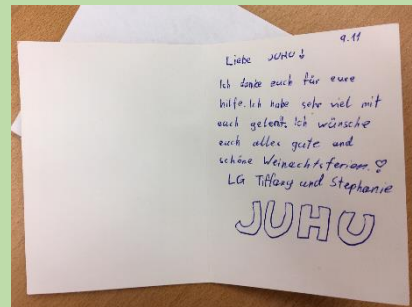 9.11
Liebe JUHU!
Ich danke euch für eure
hilfe. Ich habe sehr viel mit
euch gelernt. Ich wünsche
euch alles gute and
schöne Weinachtsferien.
LG Tiffany und Stephanie
JUHU